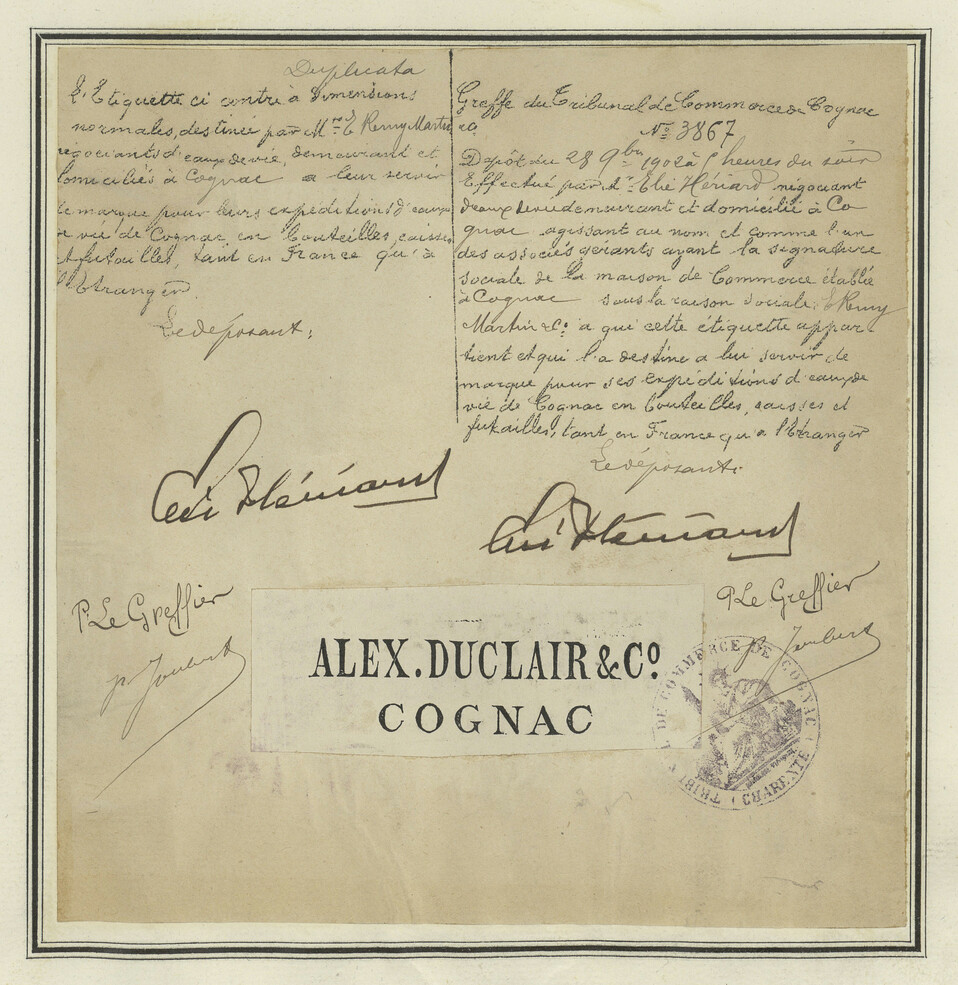 Duplicata
L'Etiquette ci contre à dimensions
normales, destinée par Mrs E Remy Martin
négociants d'eaux de vie, demeurant et
domiciliés à Cognac a leur servir
de marque pour leurs expéditions d'eaux
de vie de Cognac en bouteilles, caisses
et futailles, tant en France qu'à
l'Etranger
Le déposant:
Elie Hériard
P. Le Greffier
p Joubert
Greffe du Tribunal de Commerce de Cognac
No 3867
Dépôt du 28 9bre 1902 à heures du soir
Effectué par Mr Elie Hériard négociant
d'eaux de vie demeurant et domicilié à Co
gnac agissant au nom et comme l'un
des associés gérants ayant la signature
sociale de la maison de Commerce établie
à Cognac sous la raison sociale E Remy
Martin & Co. a qui cette étiquette appar-
tient et qui l'a destine a lui servir de
marque pour ses expéditions d'eaux de
vie de Cognac en bouteilles, caisses et
futailles, tant en France qu'a l'Etranger
Le déposant:
Elie Hériard
P Le Greffier
p Joubert
ALEX. DUCLAIR & Co.
COGNAC
TRIBL DE COMMERCE DE COGNAC
CHARENTE